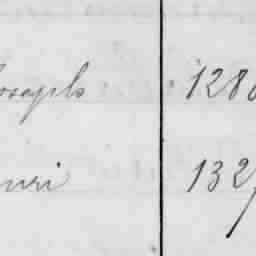 oseph 128
enri 132